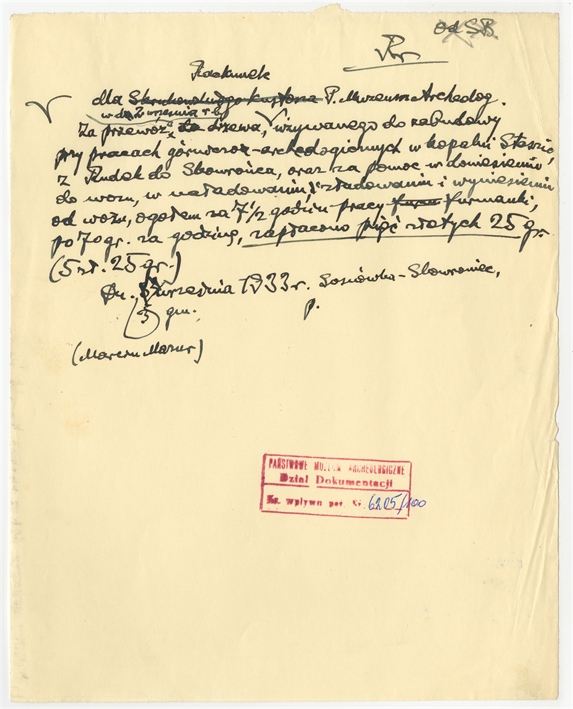 od S.B.
Rachunek
dla Skrukowskiego kustosza P. Muzeum Archeolog.
w dn. 2 września r. b.
za przewóz do drzewa, używanego do zabudowy
przy pracach górniczo-archeologicznych w kopalni Staszic,
z Rudek do Skowrońca, oraz za pomoc w doniesieniu
do wozu, w naładowaniu i zładowaniu i wyniesieniu
od wozu, ogółem za 7 1/2 godzin pracy furmanki,
po 70 gr. za godzinę, zapłacono pięć złotych 25 gr.
(5 zł. 25 gr.)
Dn. września 1933 r. Sosnówka-Skowroniec,
5 gm. p.
(Marcin Mazur)
PAŃSTWOWE MUZEUM ARCHEOLOGICZNE
Dział Dokumentacji
Ks. wpływu poz. Nr. 6205/100